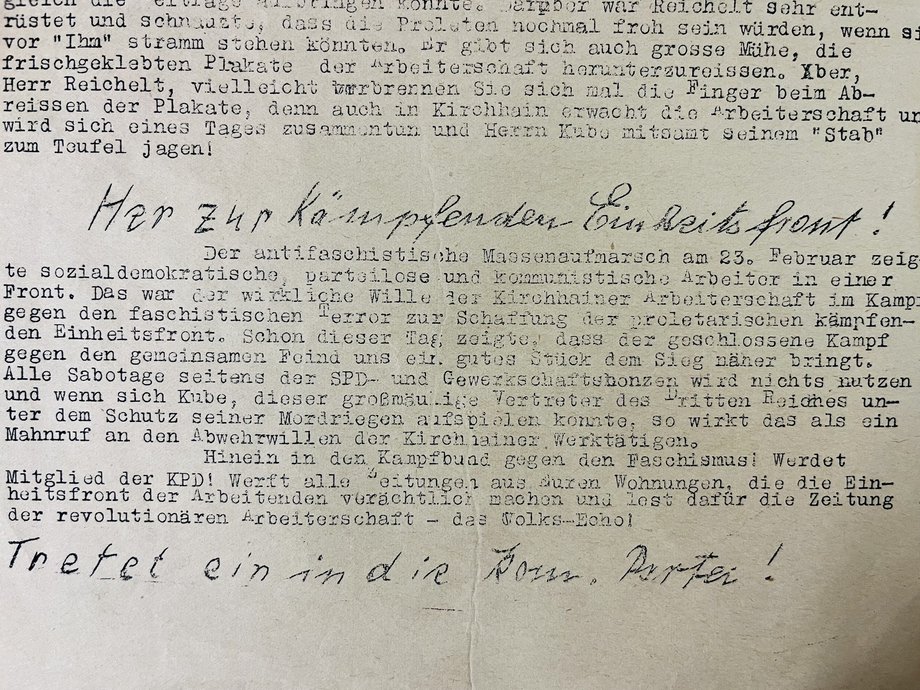 gleich die Beiträge aufbringen könnte. Darüber war Reichelt sehr ent-
rüstet und schnauzte, dass die Proleten nochmal froh sein würden, wenn si
vor "Ihm" stramm stehen könnten. Er gibt sich auch grosse Mühe, die
frischgeklebten Plakate der Arbeiterschaft herunterzureissen. Aber,
Herr Reichelt, vielleicht verbrennen Sie sich mal die Finger beim Ab-
reissen der Plakate, denn auch in Kirchhain erwacht die Arbeiterschaft un
wird sich eines Tages zusammentun und Herrn Kube mitsamt seinem "Stab"
zum Teufel jagen!
Her zur Kämpfenden Einheitsfront!
Der antifaschistische Massenaufmarsch am 23. Februar zeig
te sozialdemokratische, parteilose und kommunistische Arbeiter in einer
Front. Das war der wirkliche Wille der Kirchhainer Arbeiterschaft im Kampf
gegen den faschistischen Terror zur Schaffung der proletarischen kämpfen-
den Einheitsfront. Schon dieser Tag zeigte, dass der geschlossene Kampf
gegen den gemeinsamen Feind uns ein gutes Stück dem Sieg näher bringt.
Alle Sabotage seitens der SPD- und Gewerkschaftsbonzen wird nichts nutzen
und wenn sich Kube, dieser großmäulige Vertreter des Dritten Reiches un-
ter dem Schutz seiner Mordriegen aufspielen konnte, so wirkt das als ein
Mahnruf an den Abwehrwillen der Kirchhainer Werktätigen.
Hinein in den Kampfbund gegen den Faschismus! Werdet
Mitglied der KPD! Werft alle Zeitungen aus Euren Wohnungen, die die Ein-
heitsfront der Arbeitenden verächtlich machen und lest dafür die Zeitung
der revolutionären Arbeiterschaft - das Volks-Echo!
Tretet ein in die Kom. Partei!